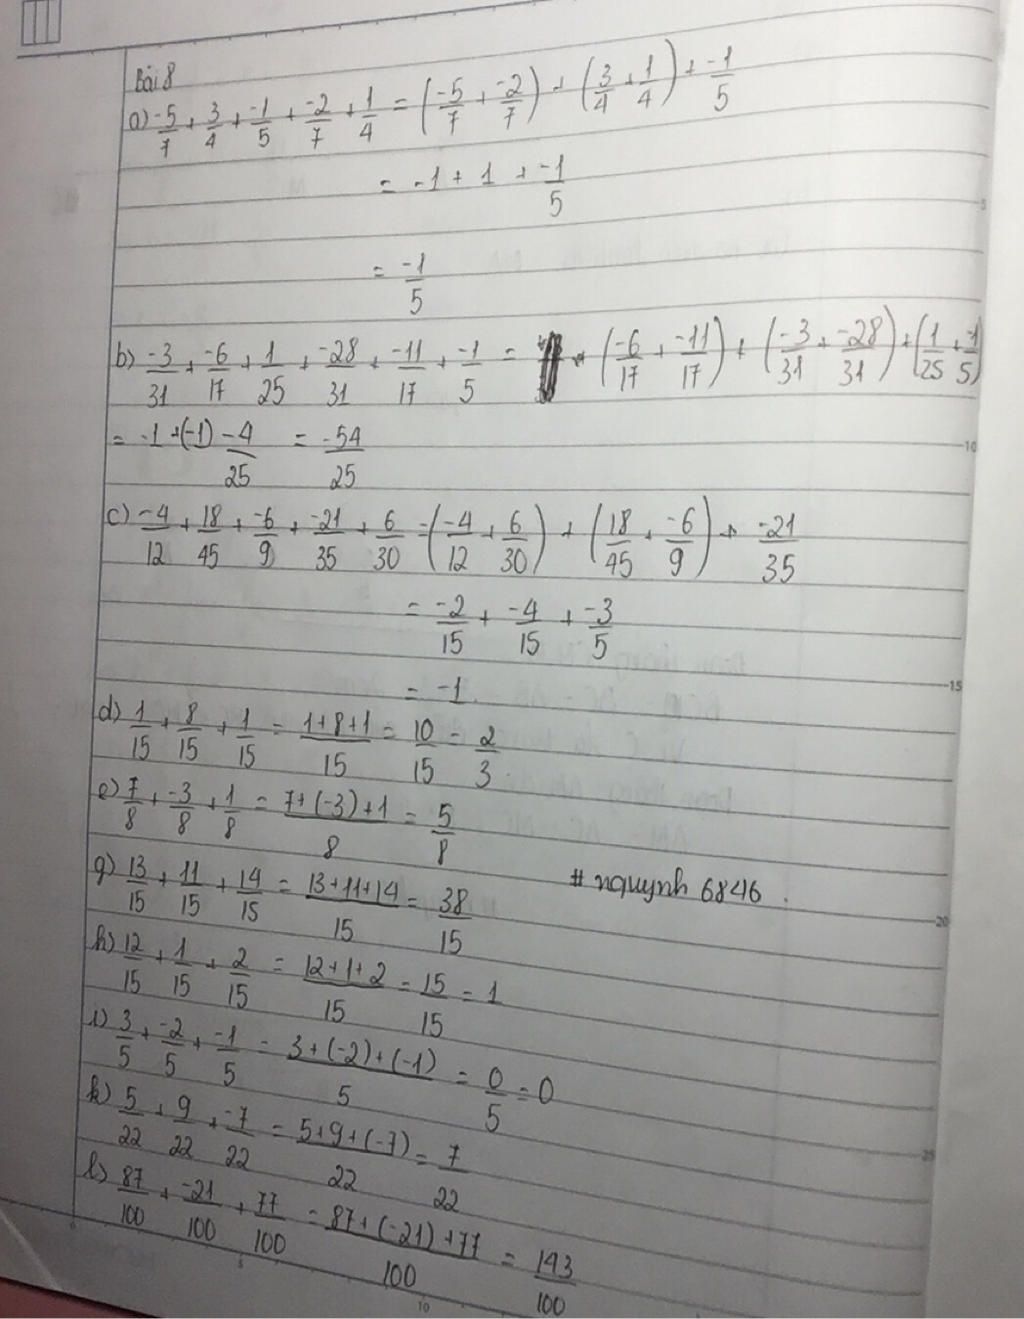 Bài 8
a) -5/7 + 3/4 + -1/5 + -2/7 + 1/4 = (-5/7 + -2/7) + (3/4 + 1/4) + -1/5
= -1 + 1 + -1/5
= -1/5
b) -3/31 + -6/17 + 1/25 + -28/31 + -11/17 + -1/5 = (-6/17 + -11/17) + (-3/31 + -28/31) + (1/25 + -1/5)
= -1 + (-1) - 4/25 = -54/25
c) -4/12 + 18/45 + -6/9 + -21/35 + 6/30 = (-4/12 + 6/30) + (18/45 + -6/9) + -21/35
= -2/15 + -4/15 + -3/5
= -1
d) 1/15 + 8/15 + 1/15 = 1+8+1/15 = 10/15 = 2/3
e) 7/8 + -3/8 + 1/8 = 7+(-3)+1/8 = 5/8
g) 13/15 + 11/15 + 14/15 = 13+11+14/15 = 38/15
# nquynh 6846.
h) 12/15 + 1/15 + 2/15 = 12+1+2/15 = 15/15 = 1
i) 3/5 + -2/5 + -1/5 = 3+(-2)+(-1)/5 = 0/5 = 0
k) 5/22 + 9/22 + -7/22 = 5+9+(-7)/22 = 7/22
l) 87/100 + -21/100 + 77/100 = 87+(-21)+77/100 = 143/100